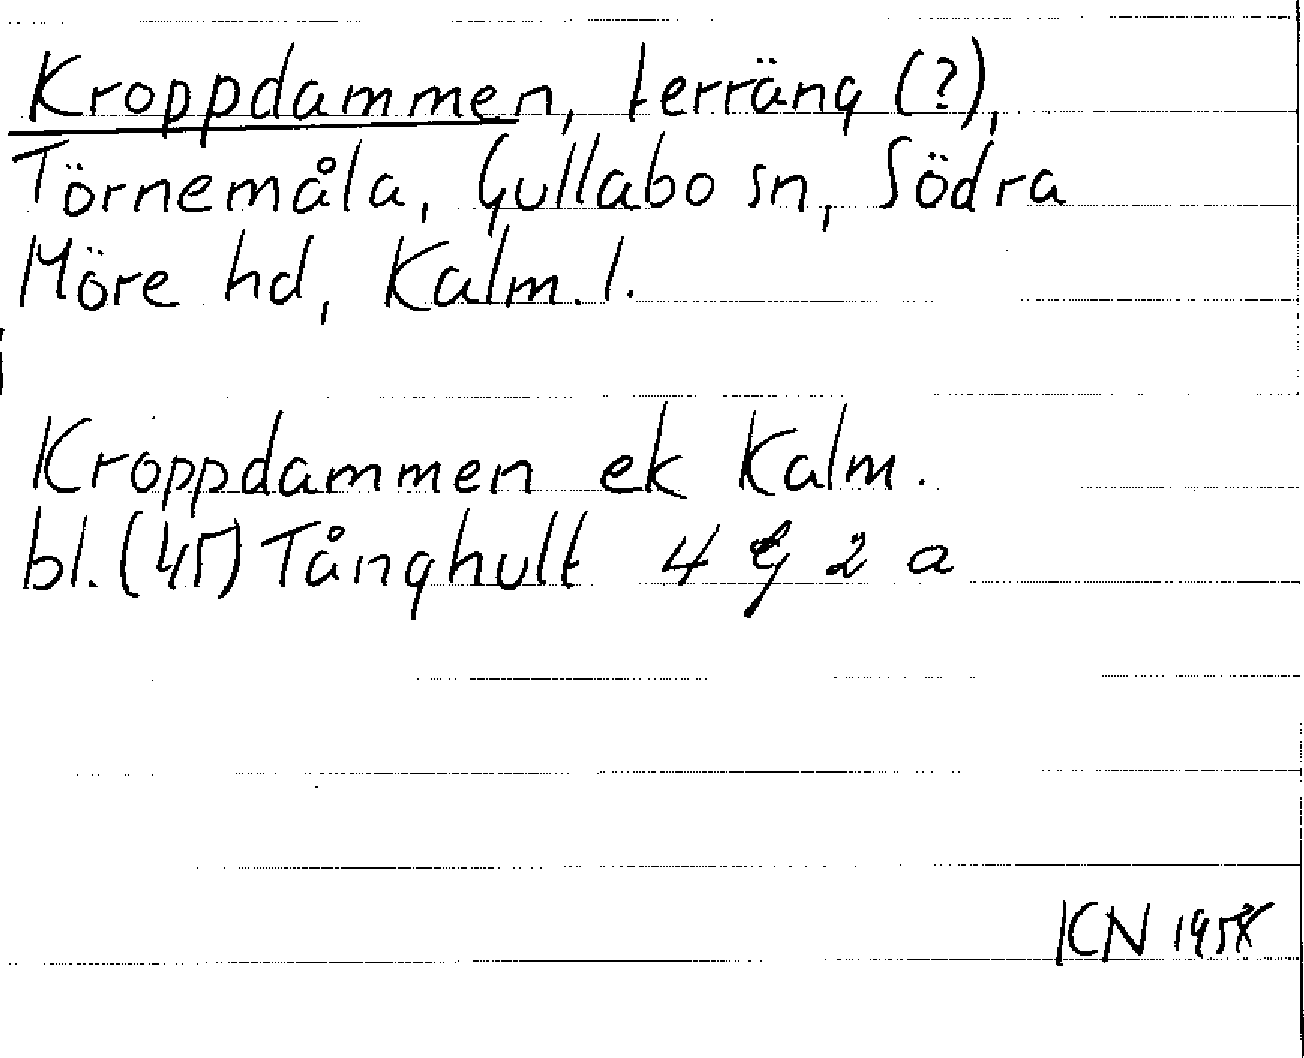 Kroppdammen, terräng (?),
Törnemåla, Gullabo sn, Södra
Möre hd, Kalm. l.
Kroppdammen ek Kalm.
bl. (45) Tånghult 4 G 2 a
KN